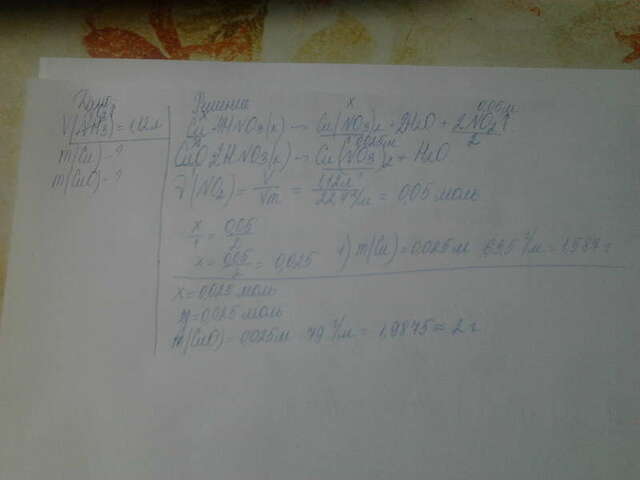 Дано:
V(NH3) = 1,12 л
m(Cu) - ?
m(CuO) - ?
Решение
x 0,05 м
Cu + 4HNO3(к) → Cu(NO3)2 + 2H2O + 2NO2↑
2
0,025 м
CuO 2HNO3(к) → Cu(NO3)2 + H2O
ν(NO2) = V/Vm = 1,12 л/22,4 л/м = 0,05 моль
x/1 = 0,05/2
x = 0,05/2 = 0,025 1) m(Cu) = 0,025 м 63,5 г/м = 1,587 г
x = 0,025 моль
y = 0,025 моль
m(CuO) = 0,025 м 79 г/м = 1,9875 ≈ 2 г